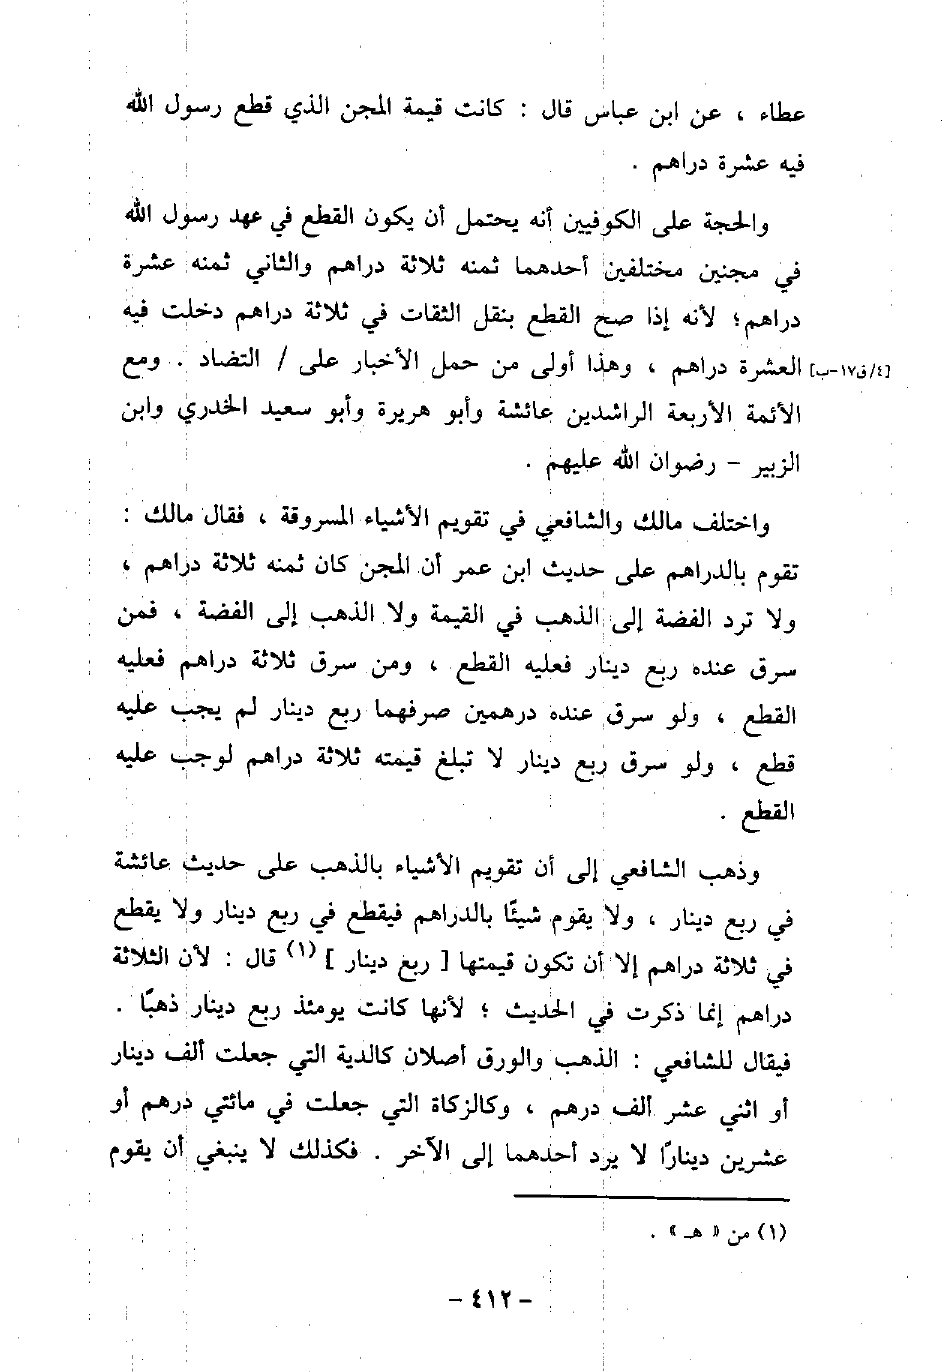 عطاء ، عن ابن عباس قال : كانت قيمة المجن الذي قطع رسول الله
فيه عشرة دراهم .
والحجة على الكوفيين أنه يحتمل أن يكون القطع في عهد رسول الله
في مجنين مختلفين أحدهما ثمنه ثلاثة دراهم والثاني ثمنه عشرة
دراهم؛ لأنه إذا صح القطع بنقل الثقات في ثلاثة دراهم دخلت فيه
[٤/ق١٧-ب] العشرة دراهم ، وهذا أولى من حمل الأخبار على / التضاد . ومع
الأئمة الأربعة الراشدين عائشة وأبو هريرة وأبو سعيد الخدري وابن
الزبير - رضوان الله عليهم .
واختلف مالك والشافعي في تقويم الأشياء المسروقة ، فقال مالك :
تقوم بالدراهم على حديث ابن عمر أن المجن كان ثمنه ثلاثة دراهم ،
ولا ترد الفضة إلى الذهب في القيمة ولا الذهب إلى الفضة ، فمن
سرق عنده ربع دينار فعليه القطع ، ومن سرق ثلاثة دراهم فعليه
القطع ، ولو سرق عنده درهمين صرفهما ربع دينار لم يجب عليه
قطع ، ولو سرق ربع دينار لا تبلغ قيمته ثلاثة دراهم لوجب عليه
القطع .
وذهب الشافعي إلى أن تقويم الأشياء بالذهب على حديث عائشة
في ربع دينار ، ولا يقوم شيئًا بالدراهم فيقطع في ربع دينار ولا يقطع
في ثلاثة دراهم إلا أن تكون قيمتها [ ربع دينار ] (١) قال : لأن الثلاثة
دراهم إنما ذكرت في الحديث ؛ لأنها كانت يومئذ ربع دينار ذهبًا .
فيقال للشافعي : الذهب والورق أصلان كالدية التي جعلت ألف دينار
أو اثني عشر ألف درهم ، وكالزكاة التي جعلت في مائتي درهم أو
عشرين دينارًا لا يرد أحدهما إلى الآخر . فكذلك لا ينبغي أن يقوم
(١) من « هـ » .
- ٤١٢ -